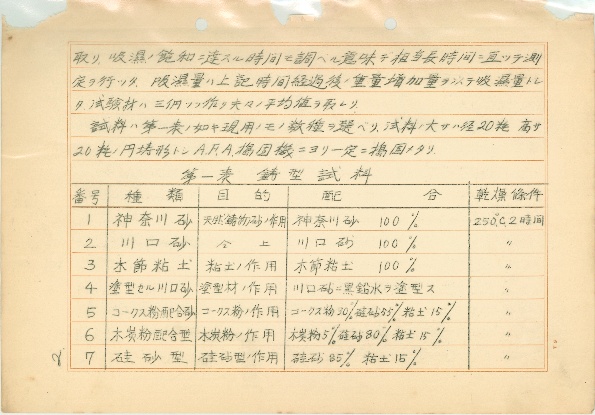 取リ、吸濕ノ飽和ニ達スル時間モ調ベル意味デ相当長時間ニ亘ッテ測
定ヲ行ッタ. 吸濕量ハ上記時間経過後ノ重量増加量ヲ以テ吸濕量トレ
タ. 試験材ハ三個ヅツ作リ夫々ノ平均値ヲ取レリ
試料ハ第一表ノ如キ現用ノモノ数種ヲ選ベリ. 試料ノ大サハ径20粍 高サ
20粍ノ円柱形トシ A.F.A. 搗固機ニヨリ一定ニ搗固メタリ.
第一表 鋳型試料
番号 種類 目的 配合 乾燥條件
1 神奈川砂 天然鋳物砂ノ作用 神奈川砂 100% 250℃, 2時間
2 川口砂 仝上 川口砂 100% 〃
3 木節粘土 粘土ノ作用 木節粘土 100% 〃
4 塗型セル川口砂 塗型材ノ作用 川口砂ニ黒鉛水ヲ塗型ス 〃
5 コークス粉配合砂 コークス粉ノ作用 コークス粉30% 硅砂55% 粘土15% 〃
6 木炭粉配合型 木炭粉ノ作用 木炭粉5% 硅砂80% 粘土15% 〃
7 硅砂型 硅砂型ノ作用 硅砂85% 粘土15% 〃
2